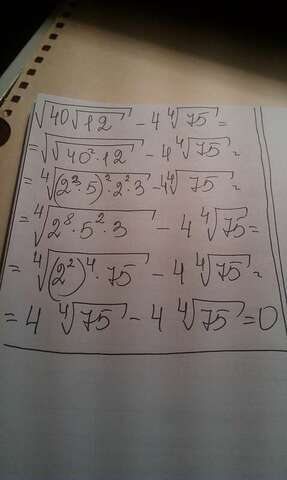 √(40√12) - 4 ⁴√75 =
= √(√(40²·12)) - 4 ⁴√75 =
= ⁴√((2³·5)²·2²·3) - 4 ⁴√75 =
= ⁴√(2⁸·5²·3) - 4 ⁴√75 =
= ⁴√((2²)⁴·75) - 4 ⁴√75 =
= 4 ⁴√75 - 4 ⁴√75 = 0